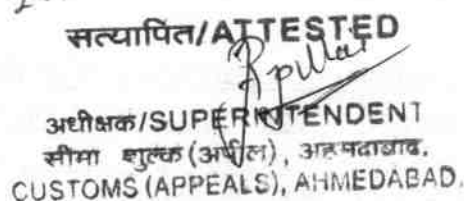 सत्यापित/ATTESTED
अधीक्षक/SUPERINTENDENT
सीमा शुल्क (अपील), अहमदाबाद.
CUSTOMS (APPEALS), AHMEDABAD.